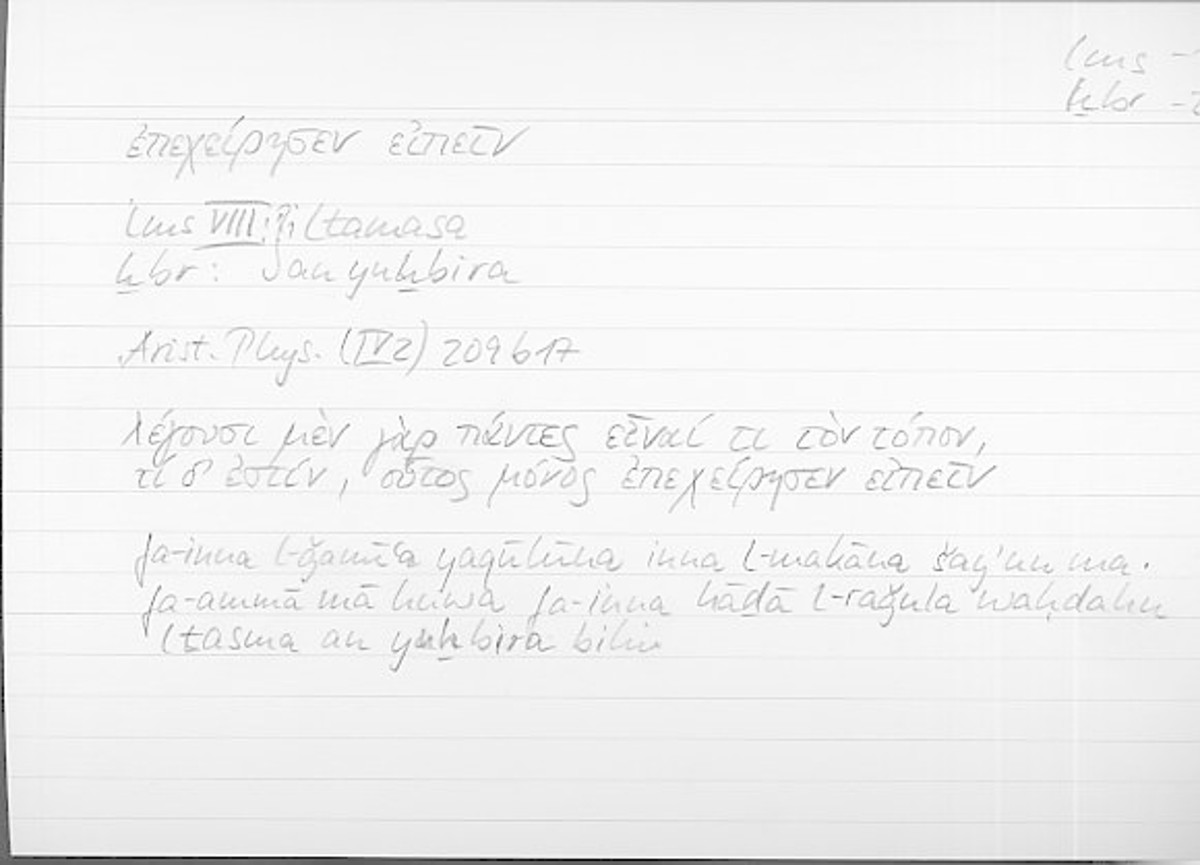 lms
ḫbr
ἐπεχείρησεν εἰπεῖν
lms VIII: iltamasa
ḫbr: an yuḫbira
Arist. Phys. (IV 2) 209 b 17
λέγουσι μὲν γὰρ πάντες εἶναί τι τὸν τόπον,
τί δ' ἐστίν, οὗτος μόνος ἐπεχείρησεν εἰπεῖν
fa-inna l-ǧamīʿa yaqūlūna inna l-makāna šayʾun ma.
fa-ammā mā huwa fa-inna hāḏā l-raǧula waḥdahu
ltasma an yuḫbira bihi